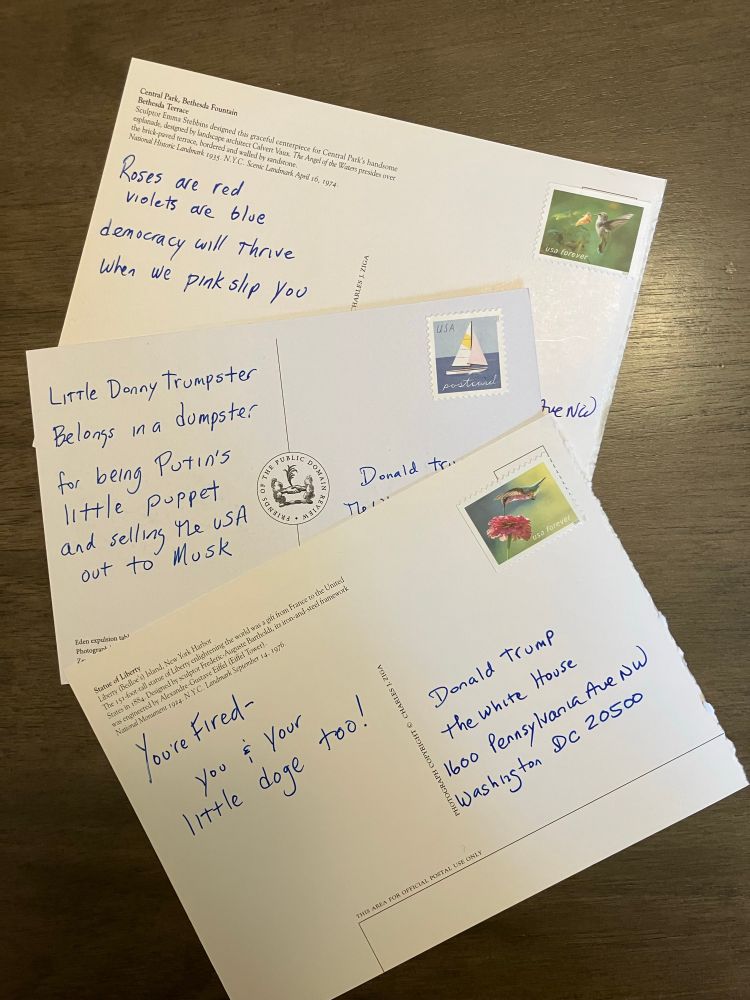 Central Park, Bethesda Fountain
Bethesda Terrace
Sculptor Emma Stebbins designed this graceful centerpiece for Central Park's handsome
esplanade, designed by landscape architect Calvert Vaux. The Angel of the Waters presides over
the brick-paved terrace, bordered and walled by sandstone.
National Historic Landmark 1935. N.Y.C. Scenic Landmark April 16, 1974.
Roses are red
violets are blue
democracy will thrive
when we pink slip you
CHARLES J. ZIGA
usa forever
Ave NW
Little Donny Trumpster
Belongs in a dumpster
for being Putin's
little puppet
and selling the USA
out to Musk
USA
postcard
FRIENDS OF THE PUBLIC DOMAIN REVIEW
Donald
Eden expulsion
Photograph
Statue of Liberty
Liberty (Bedloe's) Island, New York Harbor
The 151-foot-tall statue of Liberty enlightening the world was a gift from France to the United
States in 1884. Designed by sculptor Frederic-Auguste Bartholdi, its iron-and-steel framework
was engineered by Alexandre-Gustave Eiffel (Eiffel Tower).
National Monument 1924. N.Y.C. Landmark September 14, 1976.
You're Fired-
you & your
little doge too!
PHOTOGRAPH COPYRIGHT © CHARLES J. ZIGA
usa forever
Donald Trump
the White House
1600 Pennsylvania Ave NW
Washington DC 20500
THIS AREA FOR OFFICIAL POSTAL USE ONLY